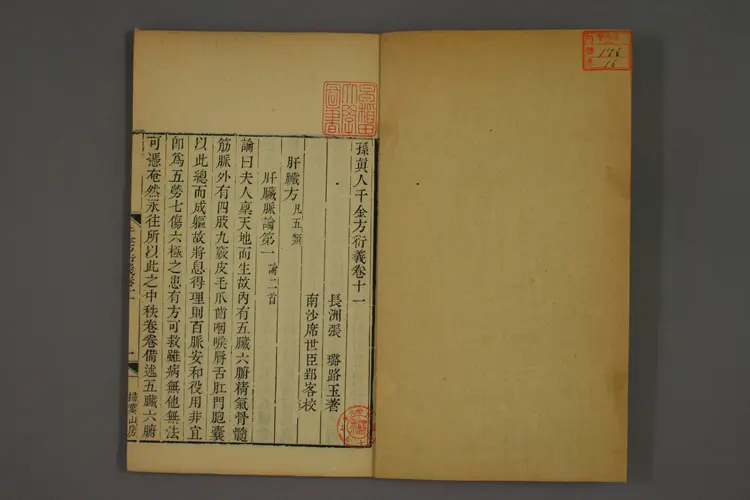 孫真人千金方衍義卷十一
長洲張　璐路玉著
南沙席世臣郢客校
肝臟方 凡五類
肝臟脈論第一 論二首
論曰夫人稟天地而生故內有五臟六腑精氣骨髓
筋脈外有四肢九竅皮毛爪齒咽喉唇舌肛門胞囊
以此總而成軀故將息得理則百脈安和役用非宜
卽為五勞七傷六極之患有方可救雖病無他無法
可憑奄然永往所以此之中秩卷卷備述五臟六腑
千金衍義卷十一
一
掃葉山房
176
16